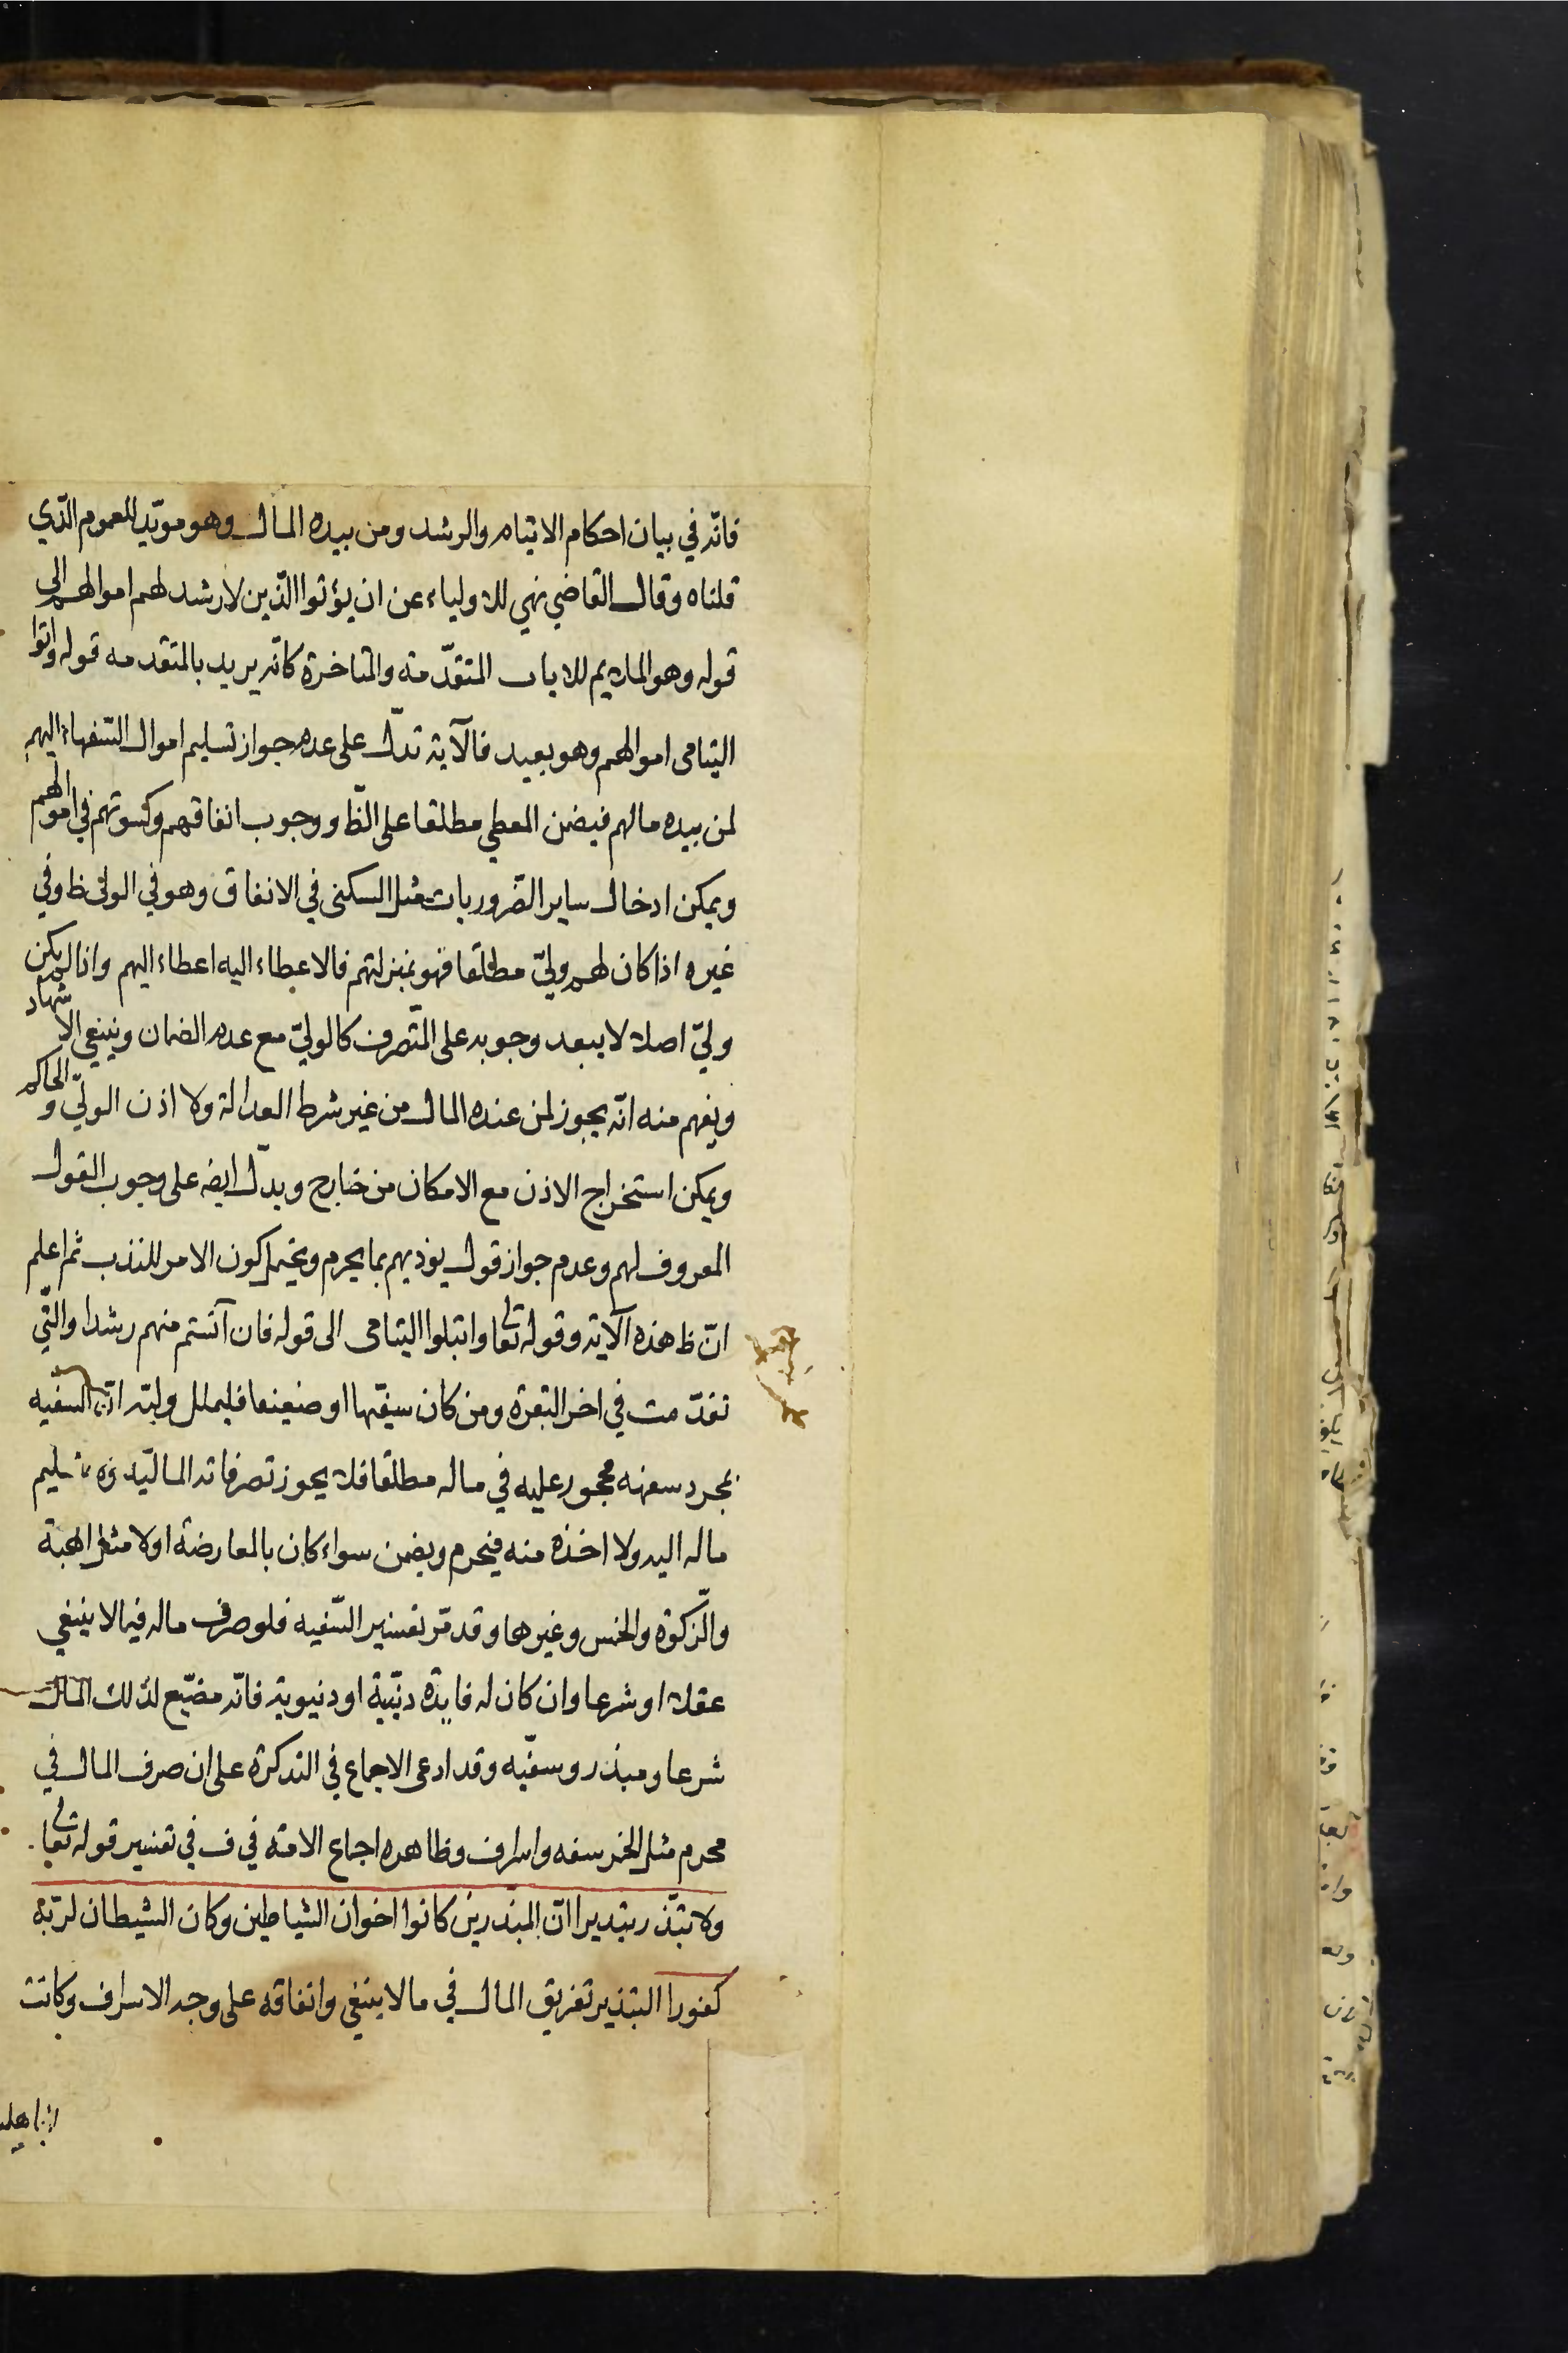 فانّه في بيان احكام الايتام والرشد ومن بيده المال وهو مويّد للعموم الذي
قلناه وقال القاضي نهي للاولياء عن ان يؤتوا الذين لا رشد لهم اموالهم الى
قوله وهو الملايم للايات المتقدّمة والمتاخرة كانّه يريد بالمتقدمه قوله واتوا
اليتامى اموالهم وهو بعيد فالآية تدلّ على عدم جواز تسليم اموال السّفهاء اليهم
لمن بيده مالهم فيضمن المعطي مطلقا على الظّ ووجوب انفاقهم وكسوتهم في اموالهم
ويمكن ادخال ساير الضّروريات مثل السكنى في الانفاق وهو في الوليّ ظ وفي
غيره اذا كان لهم وليّ مطلقا فهو بمنزلتهم فالاعطاء اليه اعطاء اليهم واذا لم يكن
وليّ اصلا لا يبعد وجوبه على المتّصرف كالوليّ مع عدم الضمان وينبغي الاشهاد
ويفهم منه انّه يجوز لمن عنده المال من غير شرط العدالة ولا اذن الوليّ والحاكم
ويمكن استخراج الاذن مع الامكان من خارج ويدلّ ايضه على وجوب القول
المعروف لهم وعدم جواز قول يوذيهم بما يحرم ويحتمل كون الامر للندب ثم اعلم
انّ ظ هذه الآية وقوله تعا وابتلوا اليتامى الى قوله فان آنستم منهم رشدا والتّي
تقدّمت في اخر البقرة ومن كان سفيها او ضعيفا فليملل وليّه انّ السفيه
بمجرد سفهه محجور عليه في ماله مطلقا فلا يجوز تصرفاته الماليّة ولا تسليم
ماله اليه ولا اخذه منه فيحرم ويضمن سواء كان بالمعارضة اولا مثل الهبة
والزّكوة والخمس وغيرها وقد مّر تفسير السّفيه فلو صرف ماله فيما لا ينبغي
عقلا او شرعا وان كان له فايدة دنيّية او دنيوية فانّه مضيّع لذلك المال
شرعا ومبذر وسفيه وقد ادعى الاجماع في التذكرة على ان صرف المال في
محرم مثل الخمر سفه واسراف وظاهره اجماع الامة في ف في تفسير قوله تعا
ولا تبذّر تبذيرا انّ المبذّرين كانوا اخوان الشياطين وكان الشيطان لربّه
كفورا التبذير تفريق المال في ما لا ينبغي وانفاقه على وجه الاسراف وكانت